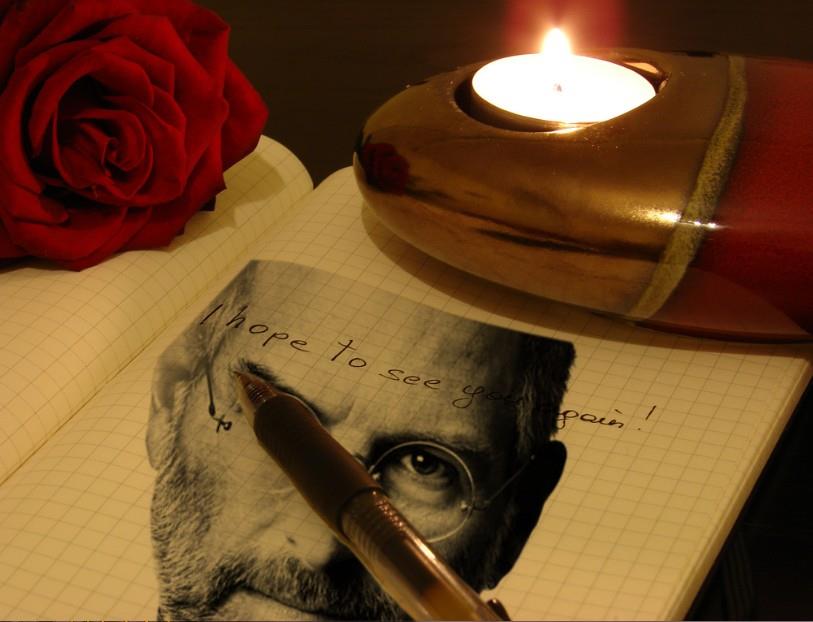 I hope to see you again!